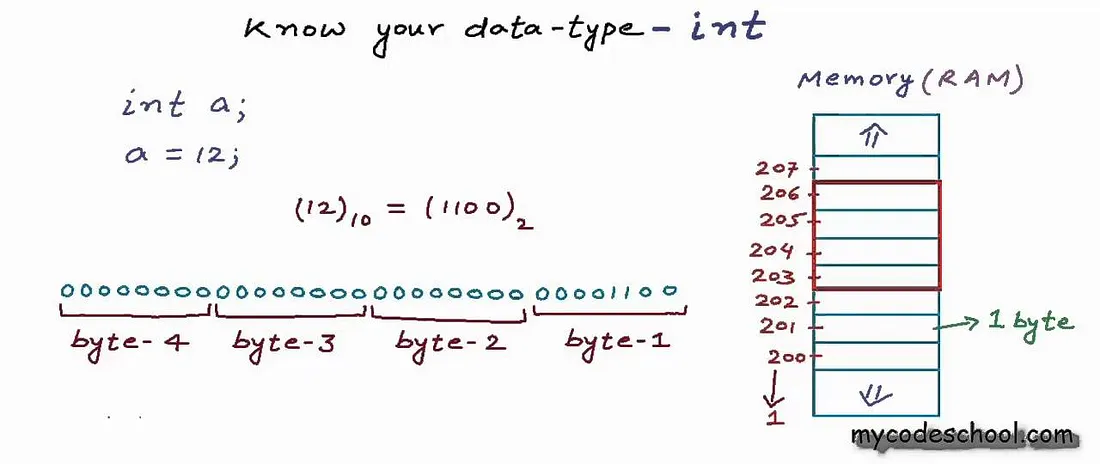 Know your data-type - int
int a;
a = 12;
(12)₁₀ = (1100)₂
00000000 00000000 00000000 00001100
byte-4 byte-3 byte-2 byte-1
Memory (RAM)
207
206
205
204
203
202
201 → 1 byte
200
↓
1
mycodeschool.com